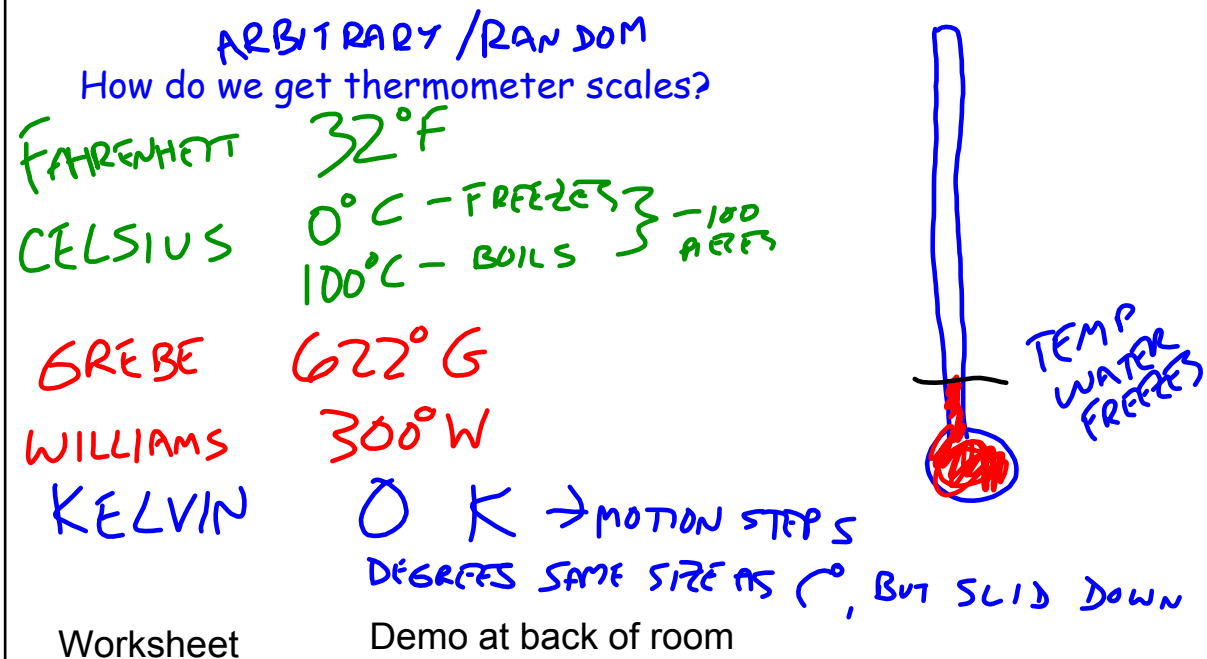 ARBITRARY/RANDOM
How do we get thermometer scales?
FAHRENHEIT 32°F
CELSIUS 0°C - FREEZES
100°C - BOILS
} -100
GREBE 622°G
WILLIAMS 300°W
KELVIN 0 K → MOTION STEPS
DEGREES SAME SIZE AS C°, BUT SLID DOWN
TEMP
WATER
FREEZES
Worksheet Demo at back of room